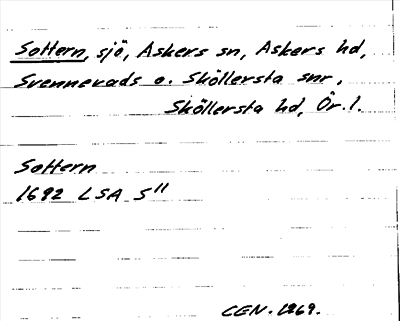 Sottern, sjö, Askers sn, Askers hd,
Svennevads o. Sköllersta snr,
Sköllersta hd, Ör. l.
Sottern
1692 LSA S11
CEN. 1969.